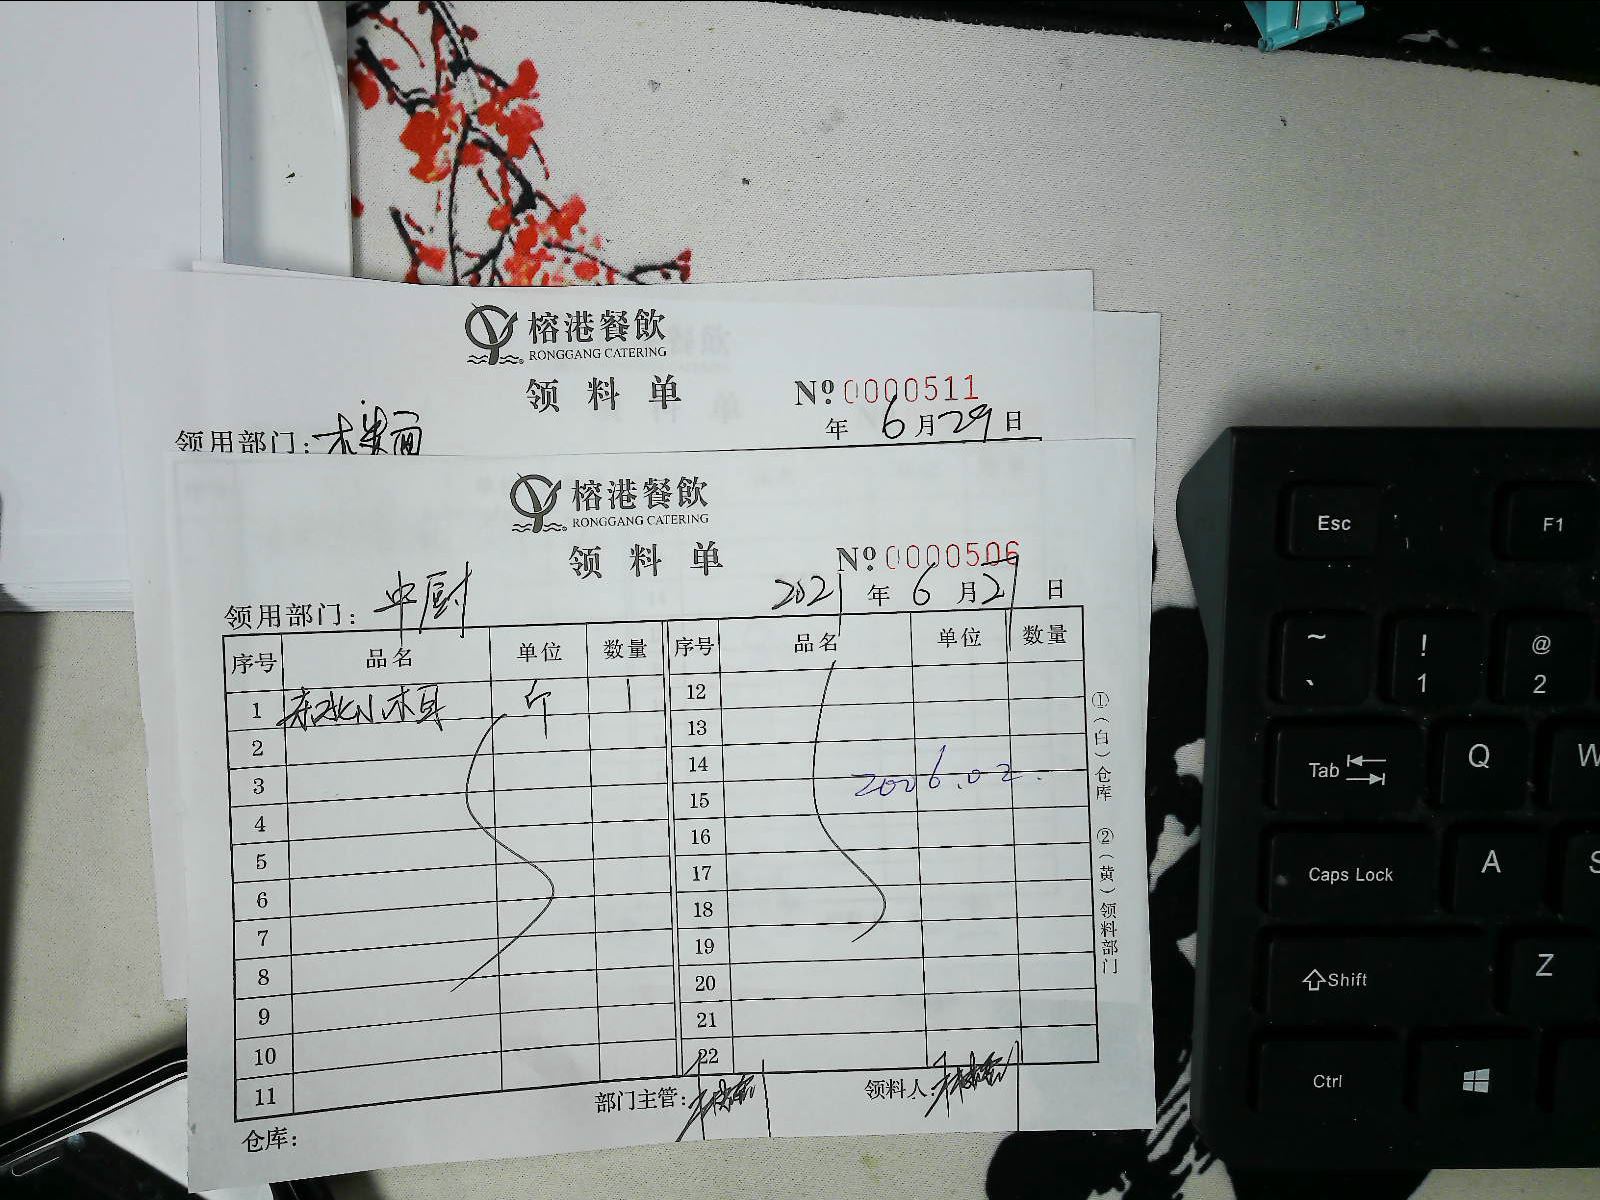 榕港餐飲
RONGGANG CATERING
领料单 Nº 0000511
领用部门: 年 6月29日
榕港餐飲
RONGGANG CATERING
领料单 Nº 0000506
领用部门: 中厨 2021年6月27日
序号 品名 单位 数量 序号 品名 单位 数量
1 东北小木耳 斤 1 12
2 13
3 14
4 15
2006.02.
5 16
6 17
7 18
8 19
9 20
10 21
11 22
部门主管: 领料人:
仓库:
①(白)仓库 ②(黄)领料部门
Esc F1
~ ` ! 1 @ 2
Tab Q W
Caps Lock A S
Shift Z
Ctrl